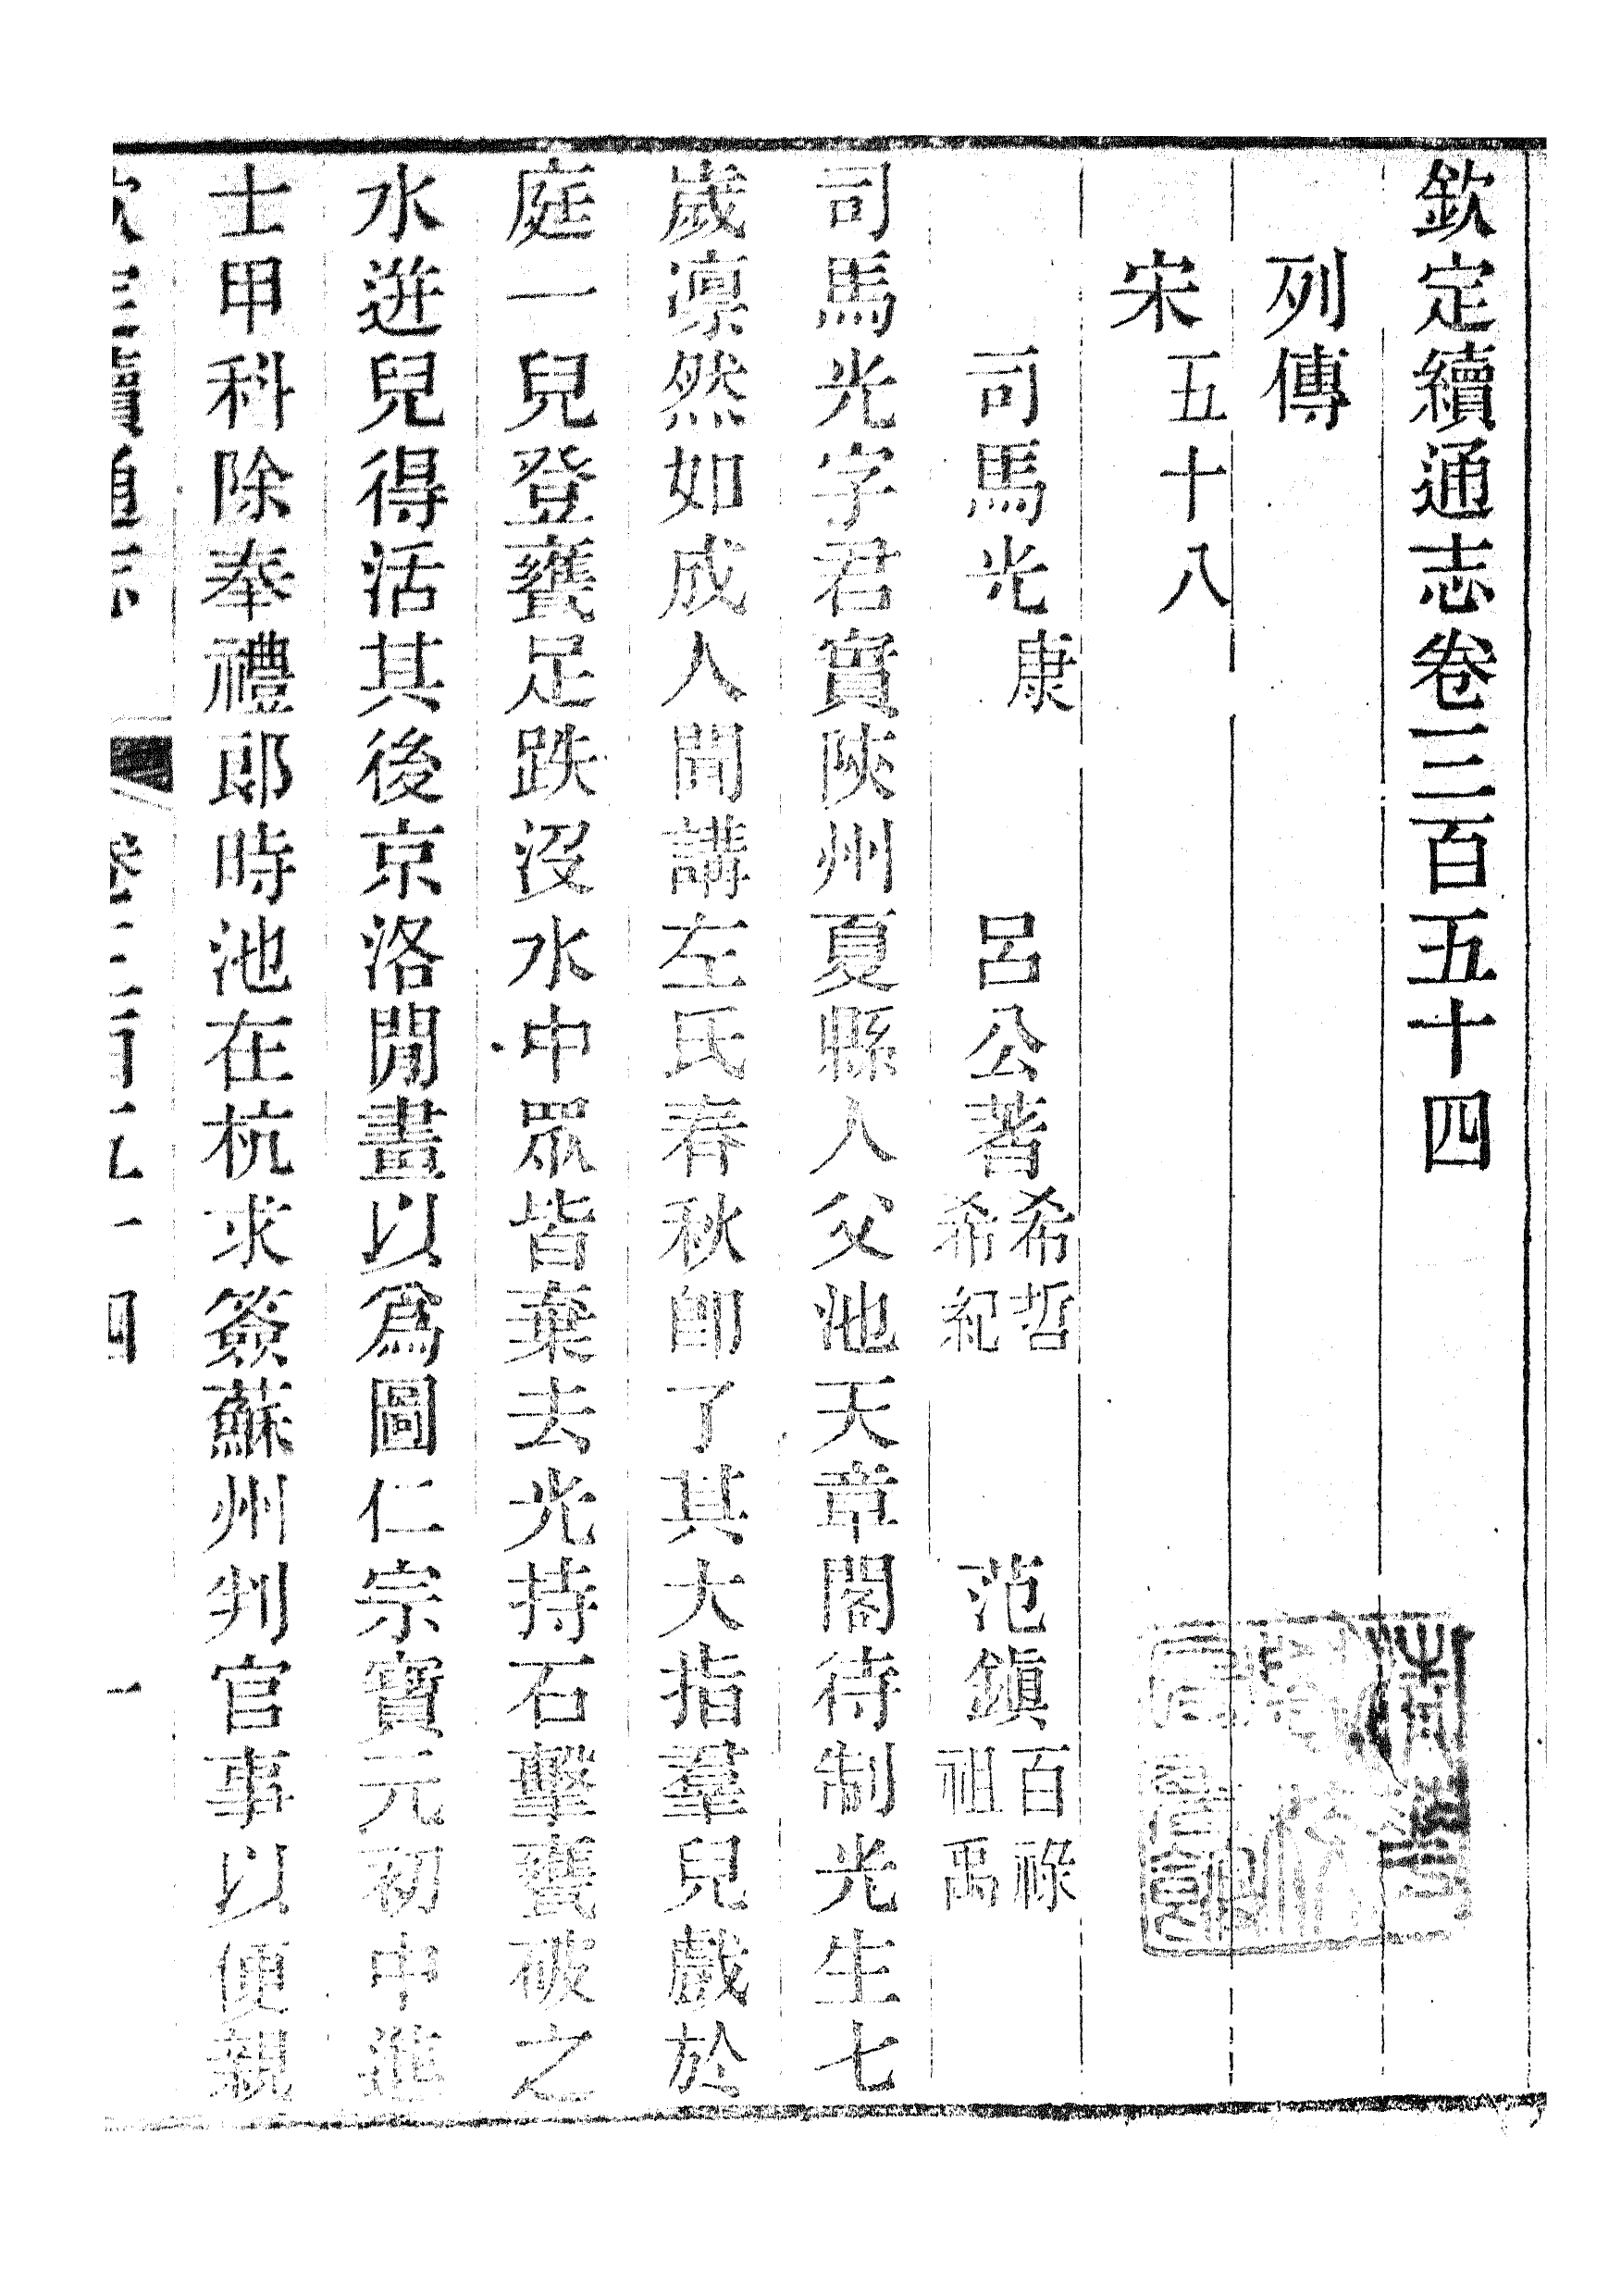 欽定續通志卷三百五十四
列傳
宋五十八
司馬光康 呂公著希哲希紀 范鎭百祿祖禹
司馬光字君實陜州夏縣人父池天章閣待制光生七
歲凛然如成人聞講左氏春秋卽了其大指羣兒戲於
庭一兒登甕足跌沒水中眾皆棄去光持石擊甕破之
水迸兒得活其後京洛閒畫以爲圖仁宗寶元初中進
士甲科除奉禮郞時池在杭求簽蘇州判官事以便親
欽定續通志 卷三百五十四 一